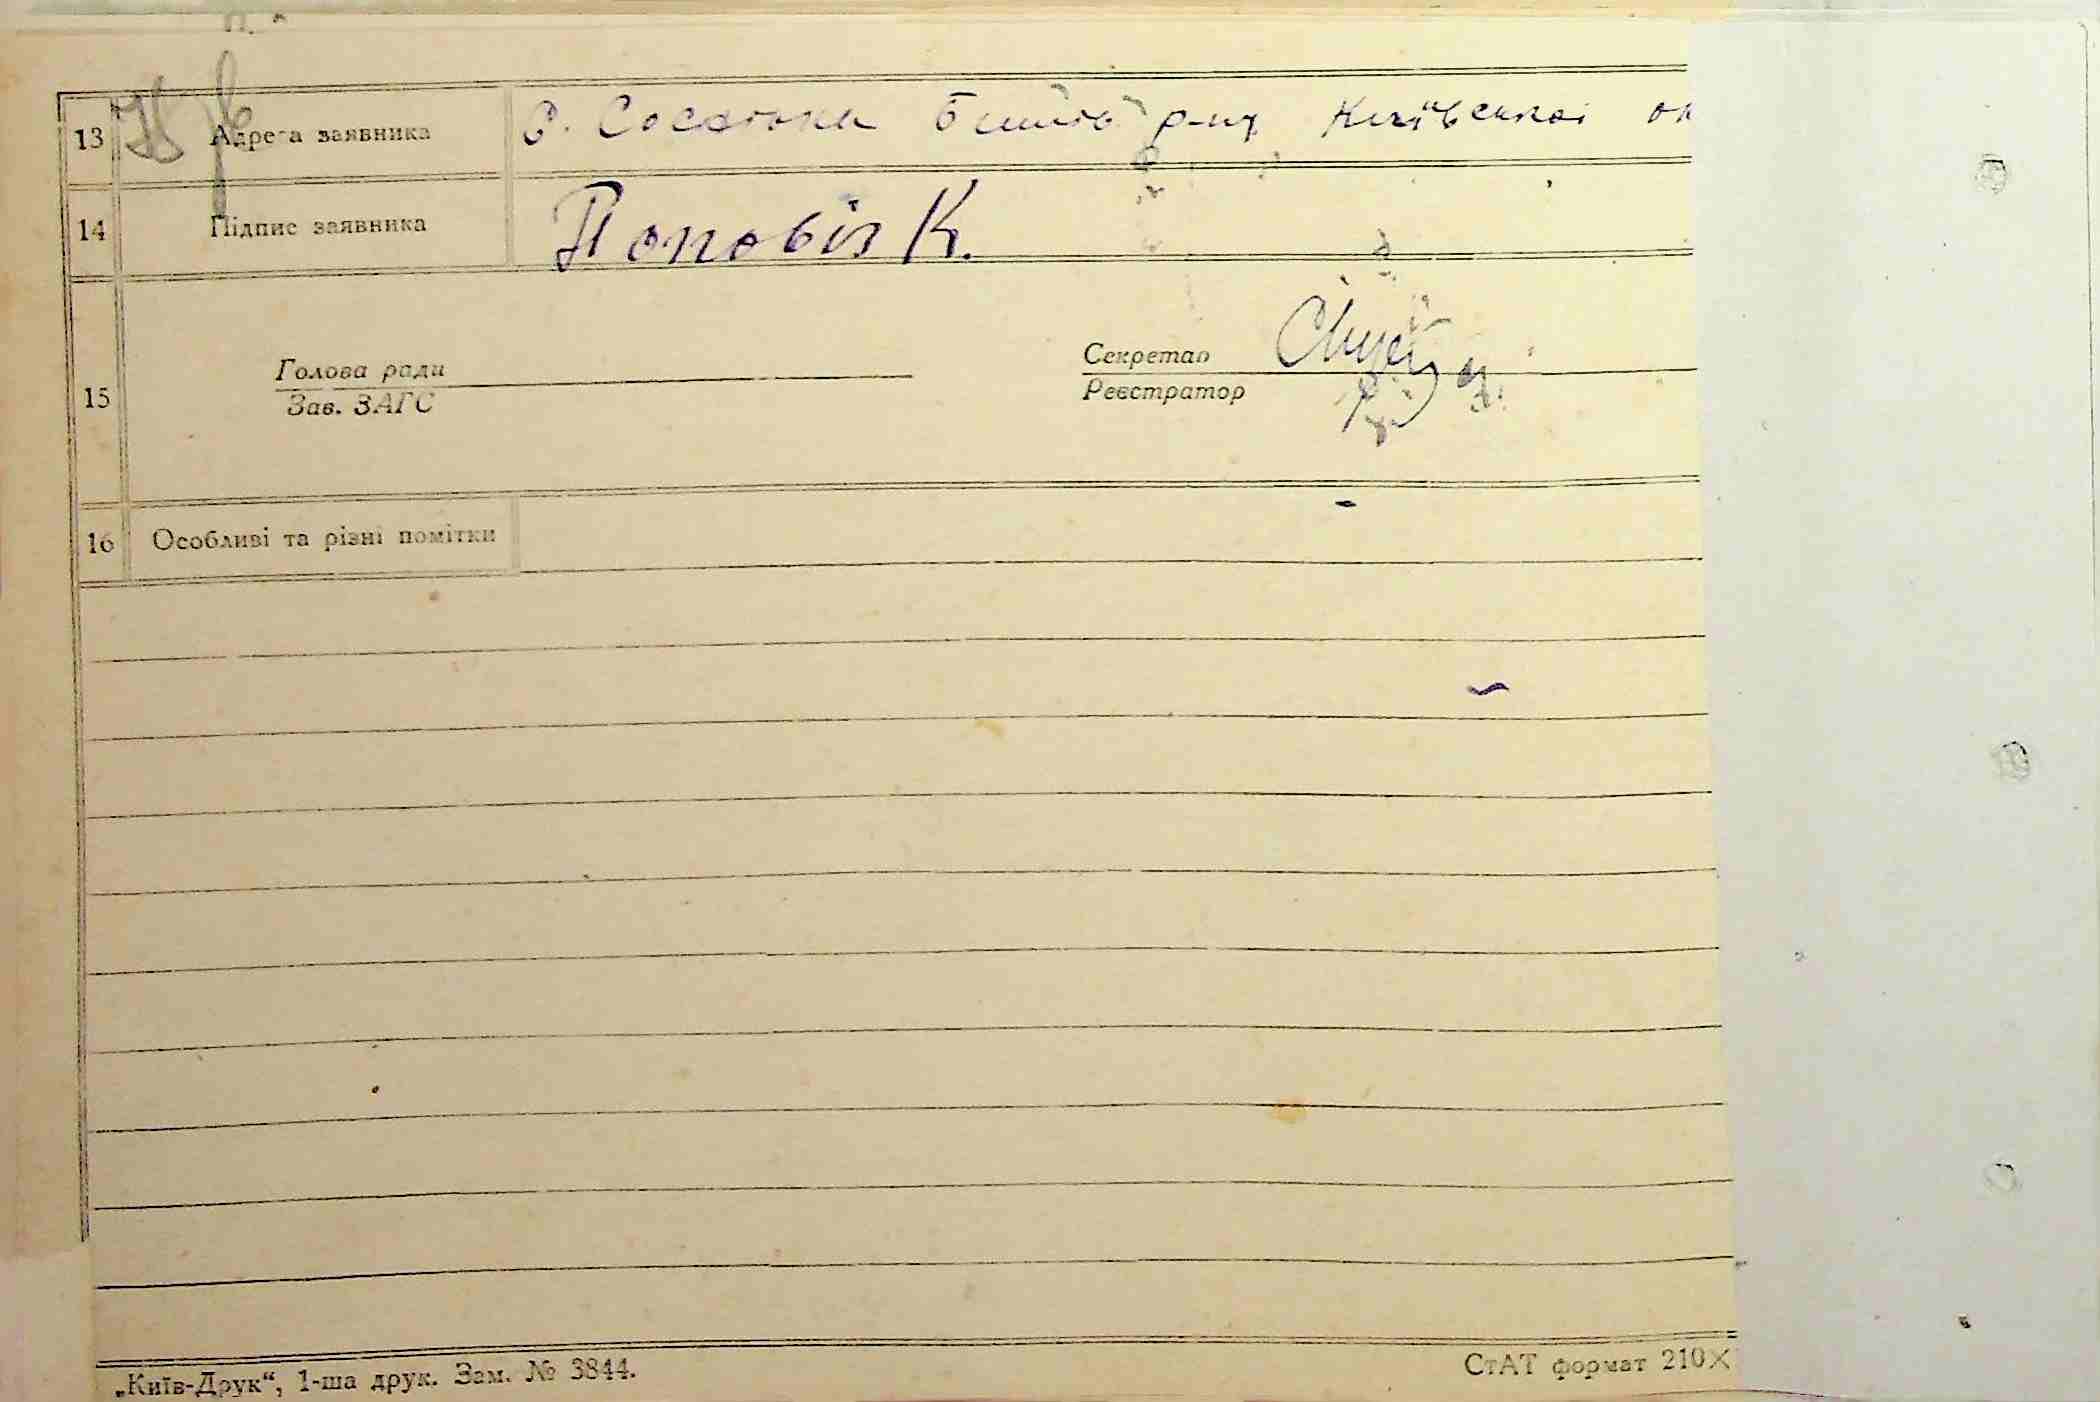 13 Адреса заявника с. Соснівка Бишів р-ну Київської ок
14 Підпис заявника Поповіч К.
15 Голова ради Секретар
Зав. ЗАГС Реєстратор
16 Особливі та різні помітки
„Київ-Друк“, 1-ша друк. Зам. № 3844. СтАТ формат 210×